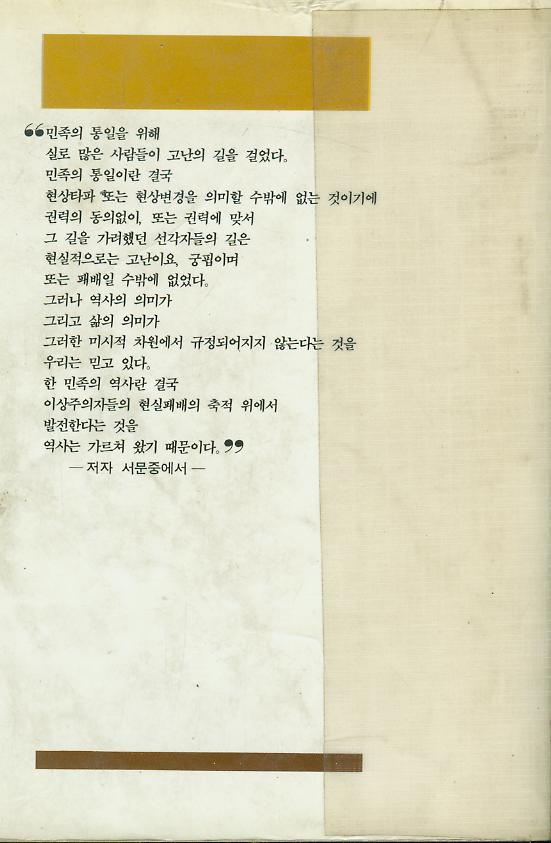 ❝민족의 통일을 위해
실로 많은 사람들이 고난의 길을 걸었다.
민족의 통일이란 결국
현상타파 또는 현상변경을 의미할 수밖에 없는 것이기에
권력의 동의없이, 또는 권력에 맞서
그 길을 가려했던 선각자들의 길은
현실적으로는 고난이요, 궁핍이며
또는 패배일 수밖에 없었다.
그러나 역사의 의미가
그리고 삶의 의미가
그러한 미시적 차원에서 규정되어지지 않는다는 것을
우리는 믿고 있다.
한 민족의 역사란 결국
이상주의자들의 현실패배의 축적 위에서
발전한다는 것을
역사는 가르쳐 왔기 때문이다.❞
— 저자 서문중에서 —